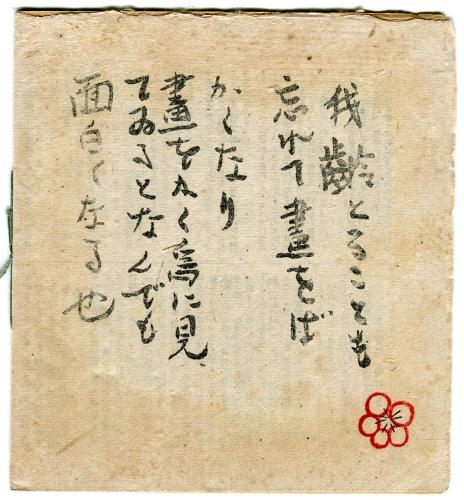 我齢とることも
忘れて畫をば
かくなり
畫をかく為に見
てゐるとなんでも
面白くなる也